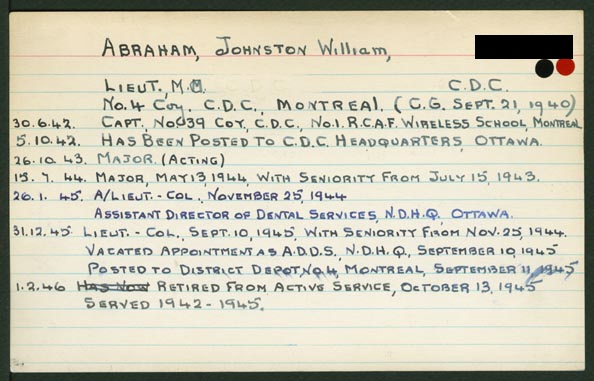 ABRAHAM, JOHNSTON William,
LIEUT., M. C.D.C.
No. 4 Coy. C.D.C., MONTREAL. (C.G. SEPT. 21, 1940)
30.6.42. CAPT., No. 39 COY, C.D.C., No.1. R.C.A.F. WIRELESS SCHOOL, MONTREAL
5.10.42. HAS BEEN POSTED TO C.D.C. HEADQUARTERS, OTTAWA.
26.10.43. MAJOR. (ACTING)
15.7.44. MAJOR, MAY 13, 1944, WITH SENIORITY FROM JULY 15, 1943.
26.1.45. A/LIEUT.-COL., NOVEMBER 25, 1944
ASSISTANT DIRECTOR OF DENTAL SERVICES, N.D.H.Q., OTTAWA.
31.12.45 LIEUT.-COL., SEPT. 10, 1945, WITH SENIORITY FROM NOV. 25, 1944.
VACATED APPOINTMENT AS A.D.D.S., N.D.H.Q., SEPTEMBER 10, 1945
POSTED TO DISTRICT DEPOT, No. 4, MONTREAL, SEPTEMBER 11, 1945
1.2.46 HAS NOW RETIRED FROM ACTIVE SERVICE, OCTOBER 13, 1945
SERVED 1942-1945.